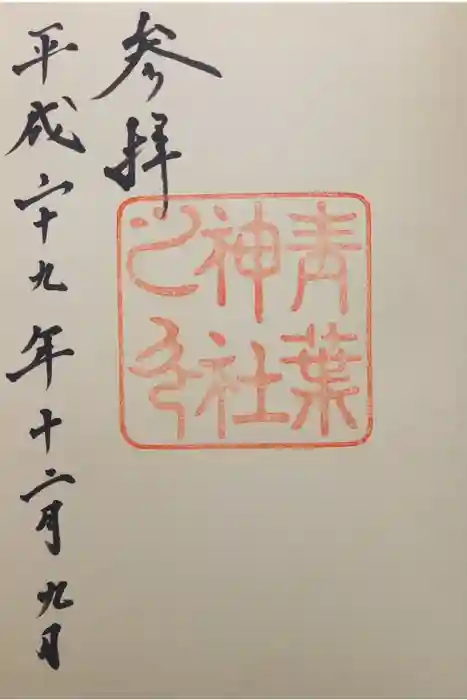 青葉
神社
之印
参拝
平成二十九年十二月九日